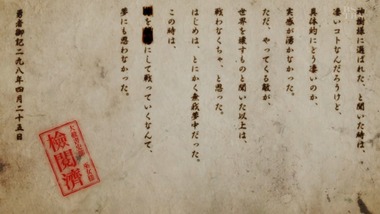 神樹様に選ばれた、と聞いた時は、
凄いコトなんだろうけど、
具体的にどう凄いのか、
実感が湧かなかった。
ただ、やってくる敵が、
世界を壊すものと聞いた以上は、
戦わなくちゃ、と思った。
はじめは、とにかく無我夢中だった。
この時は、
を にして戦っていくなんて、
夢にも思わなかった。
勇者御記二九八年四月二十五日
大赦書史部
検閲済